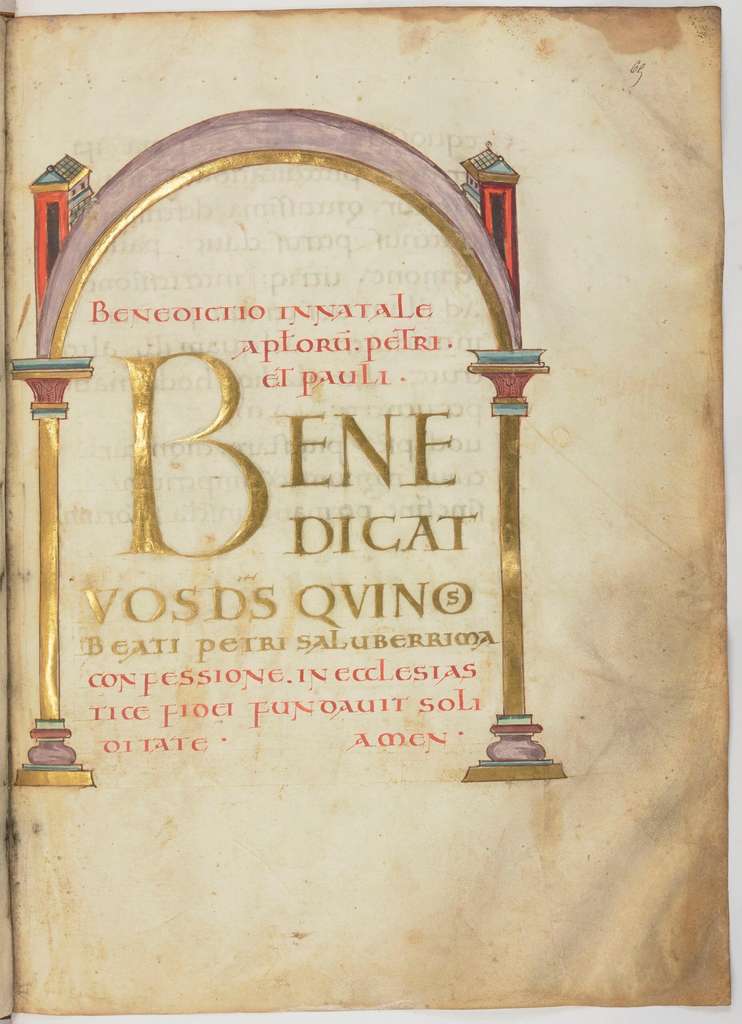 65
BENEDICTIO INNATALE
APŁORŪ. PETRI.
ET PAULI.
BENE
DICAT
VOS D̄S QVINOS
BEATI PETRI SALUBERRIMA
CONFESSIONE. IN ECCLESIAS
TICE FIDEI FUNDAUIT SOLI
DITATE. AMEN.